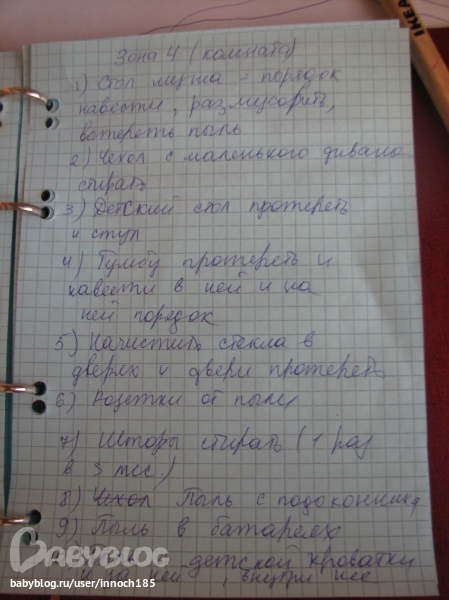 IKEA
Зона 4 (комната)
1) Стол мужа - порядок
навести, размусорить,
вытереть пыль
2) Чехол с маленького дивана
стирать
3) Детский стол протереть
и стул
4) Тумбу протереть и
навести в ней и на
ней порядок
5) Начистить стекла в
дверях и двери протереть
6) Розетки от пыли
7) Шторы стирать (1 раз
в 3 мес.)
8) Чехол Пыль с подоконника
9) Пыль в батареях
детской кроватки
и за ней, внутри нее
BABYBLOG
babyblog.ru/user/innoch185